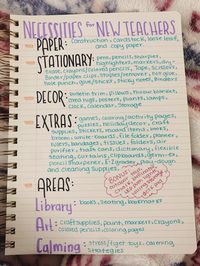 NECESSITIES for NEW TEACHERS
PAPER: Construction, Cardstock, loose leaf,
and copy paper
STATIONARY: pens, pencils, sharpies,
highlighters, markers, dry-
erase, crayons/colored pencils, Tape, Scissors,
Binder/paper clips, Staples/remover, hot glue,
hole punch, sticky notes, Binders
DECOR: bulletin trim, pillows, throw blanket,
area rugs, posters, plants, lamps,
Clock, Calendar, Storage
EXTRAS: games, coloring/activity pages,
puzzles, holiday/decor, cleaning
supplies, stickers, reward items, books,
lesson
tissues, folders, air
purifier, flexible
Seating, curtains, clipboards, germ-x,
pencil sharpener, play-dough,
and cleaning supplies.
AREAS:
Library: books, Seating, bookmarks
Art: craft supplies, paint, markers, crayons,
colored pencils, coloring pages
Calming: stress/fidget toys, calming
strategies